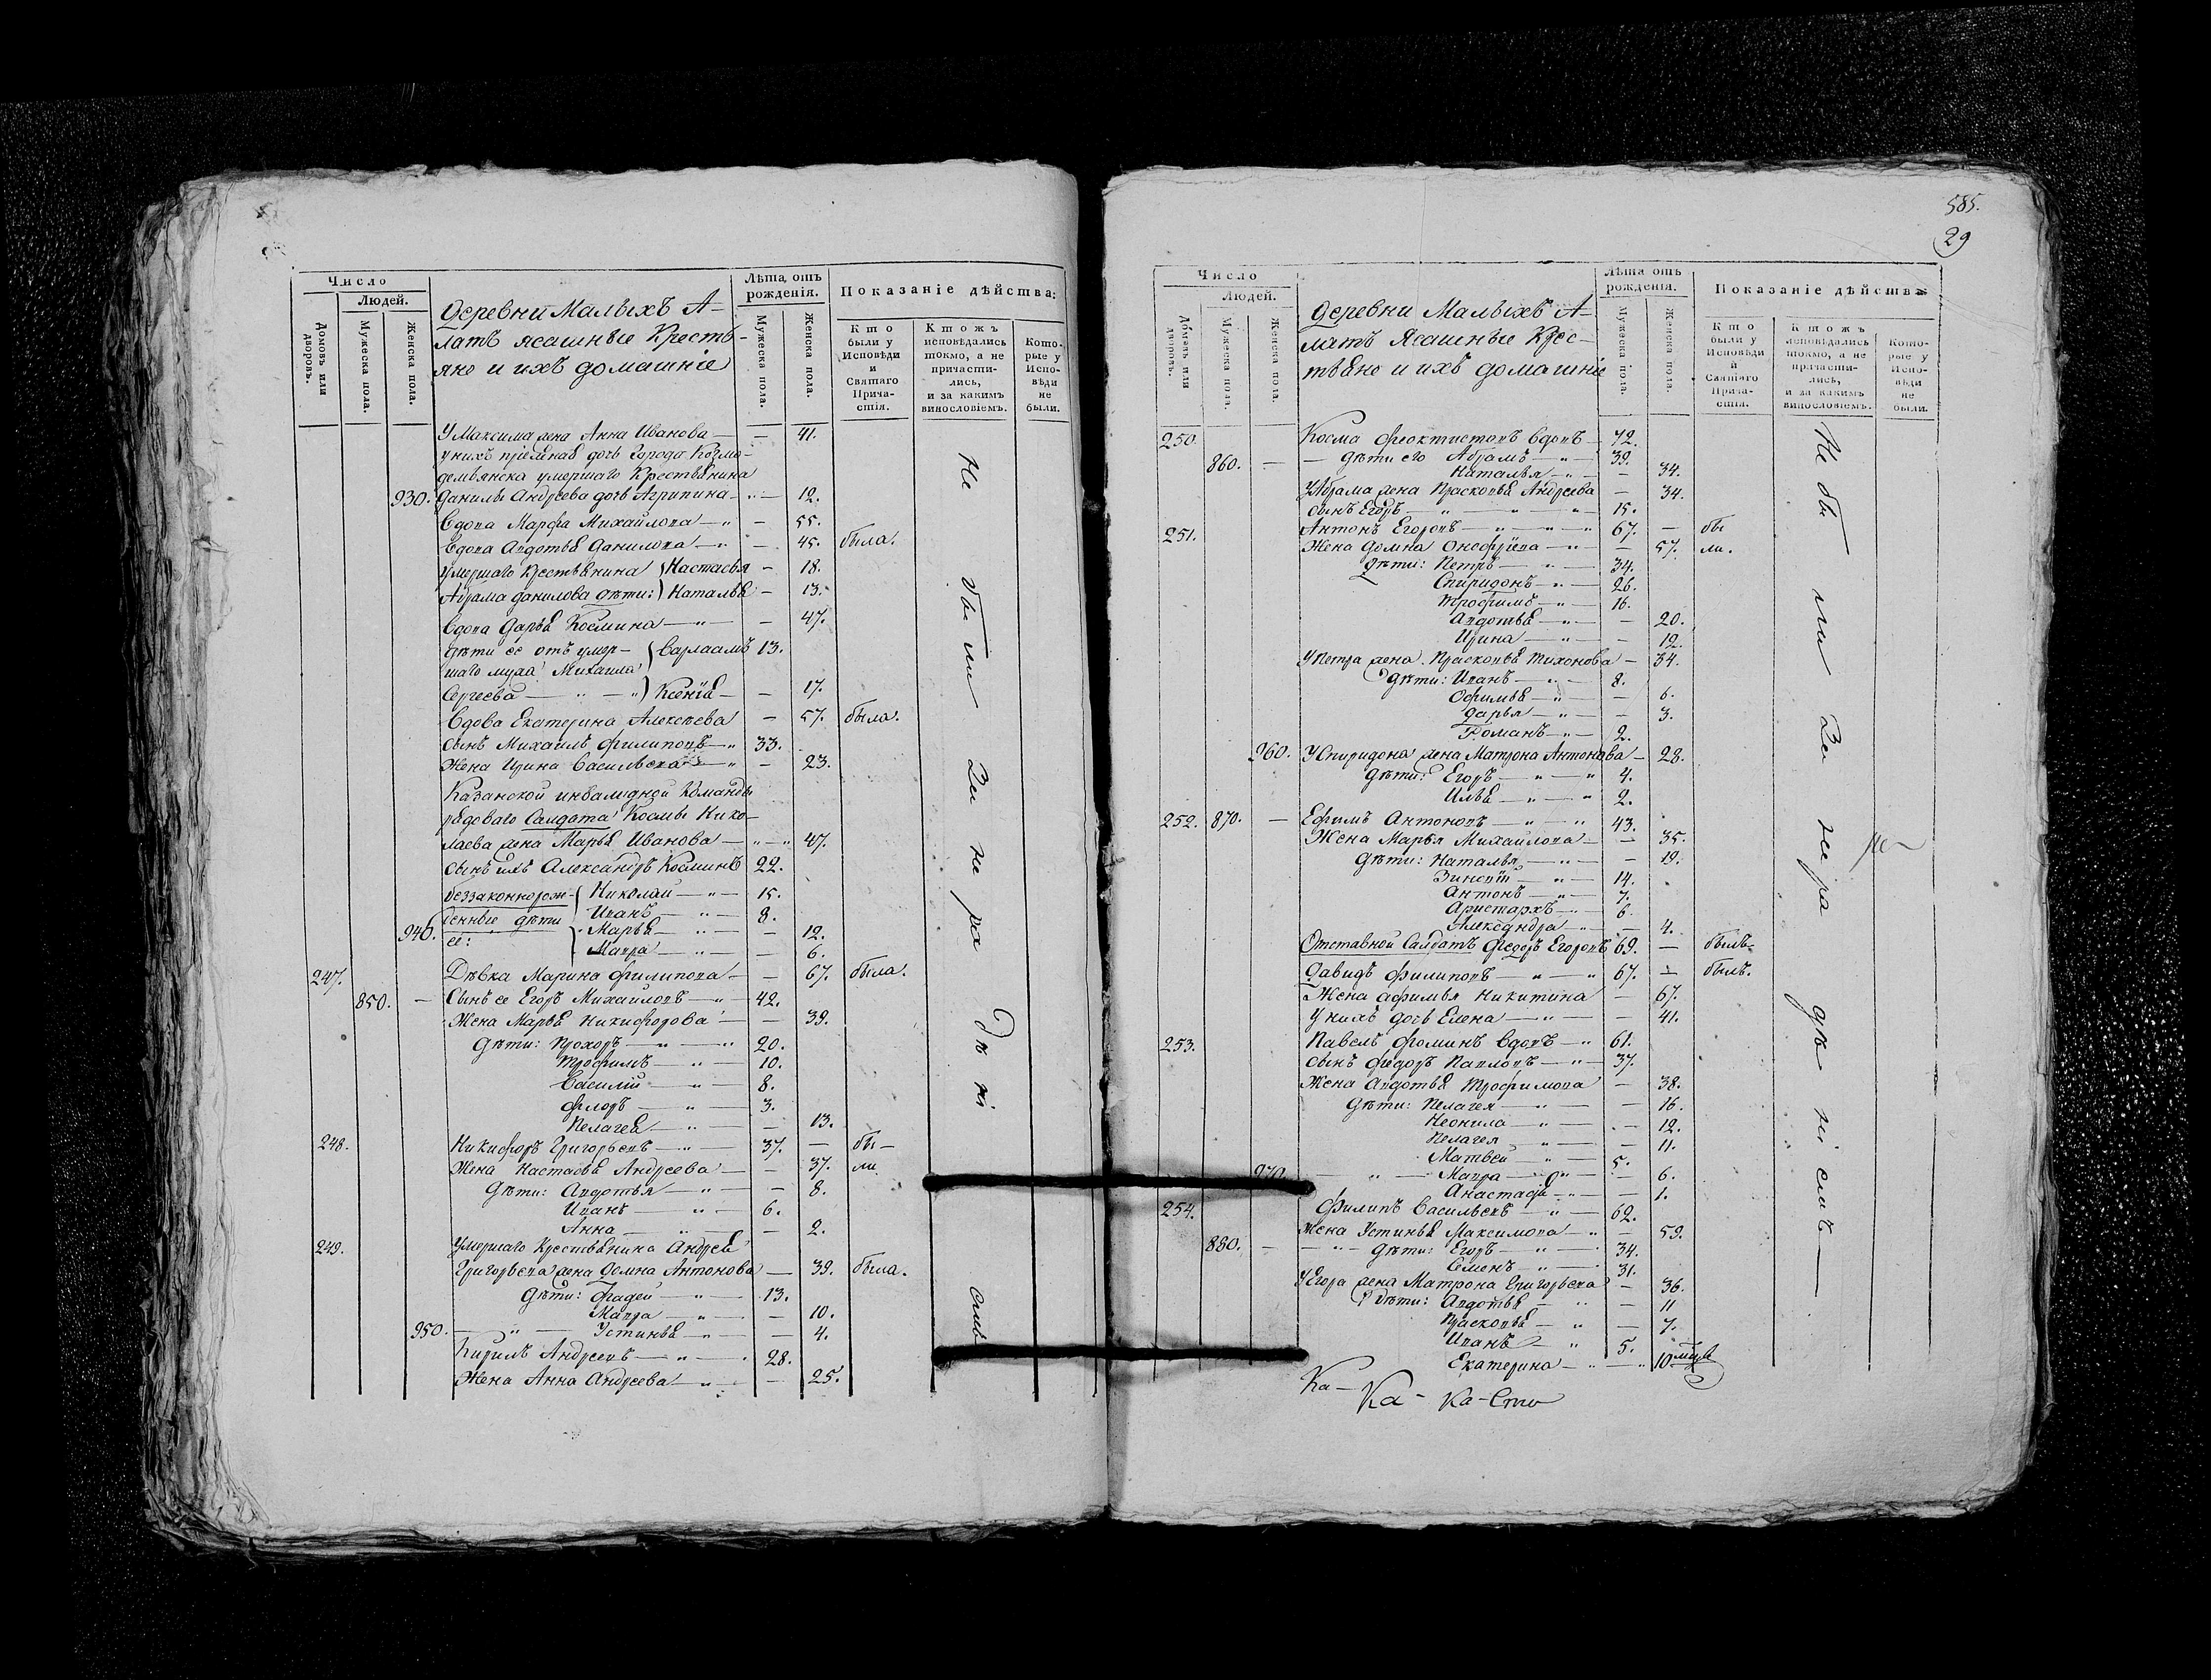 Число
Людей.
Домовъ или дворовъ.
Мужеска пола.
Женска пола.
Деревни Малыхъ А-
латъ ясашные Кресть-
яне и ихъ домашніе
Лѣта отъ рожденія.
Мужеска пола.
Женска пола.
Показаніе дѣйства:
Кто были у Исповѣди и Святаго Причастія.
Ктожъ исповѣдались токмо, а не причастились, и за какимъ винословіемъ.
Которые у Исповѣди не были.
У Максима жена Анна Иванова — — 41.
у нихъ пріемная дочь города Козмо-
демьянска умершаго Крестьянина
930. Данилы Андреева дочь Агрипина — — 12.
Вдова Марфа Михайлова — — 55.
Вдова Авдотья Данилова — — 45. была.
умершаго Крестьянина Настасья — 18.
Абрама Данилова дѣти: Наталья — 13.
Вдова Дарья Космина — — 47.
дѣти ее отъ умер- Варлаамъ 13.
шаго мужа Михаила
Сергеева — Ксенія — — 17.
Вдова Екатерина Алексеева — 57. была.
сынъ Михаилъ Филиповъ — 33.
Жена Ирина Васильева — — 23.
Казанской инвалидной Команды
рядоваго Салдата Космы Нико-
лаева жена Марья Иванова — 47.
сынъ ихъ Александръ Косминъ 22.
беззаконнорож- Николай — 15.
денные дѣти Иванъ — 8.
940. ее: Марья — — 12.
Мавра — — 6.
247. Дѣвка Марина Филипова — — 67. была.
850. — Сынъ ее Егоръ Михайловъ — 42.
Жена Марья Никифорова — — 39.
Дѣти: Прохоръ — 20.
Трофимъ — 10.
Василій — 8.
Флоръ — 3.
Пелагея — — 13.
248. Никифоръ Григорьевъ — 37. — бы-
Жена Настасья Андреева — — 37. ли.
Дѣти: Авдотья — — 8.
Иванъ — 6.
Анна — — 2.
249. Умершаго Крестьянина Андрея
Григорьева жена Домна Антонова — 39. была.
Дѣти: Фадей — 13.
Мавра — — 10.
950. — Устинья — — 4.
Кирилъ Андреевъ — 28.
Жена Анна Андреева — — 25.
Не были за нерадѣніемъ
585.
29
Число
Людей.
Домовъ или дворовъ.
Мужеска пола.
Женска пола.
Деревни Малыхъ А-
латъ Ясашные Крес-
тьяне и ихъ домашніе
Лѣта отъ рожденія.
Мужеска пола.
Женска пола.
Показаніе дѣйства:
Кто были у Исповѣди и Святаго Причастія.
Ктожъ исповѣдались токмо, а не причастились, и за какимъ винословіемъ.
Которые у Исповѣди не были.
250. Косма Феоктистовъ вдовъ — 72.
860. — — дѣти его Абрамъ — 39.
Наталья — — 34.
У Абрама жена Прасковья Андреева — 34.
сынъ Егоръ — 15.
251. Антонъ Егоровъ — 67. — бы
Жена Домна Онофріева — — 57. ли.
Дѣти: Петръ — 34.
Спиридонъ — 26.
Трофимъ — 16.
Авдотья — — 20.
Ирина — — 12.
У Петра жена Прасковья Тихонова — 34.
Дѣти: Иванъ — 8.
Офимья — — 6.
Дарья — — 3.
Романъ — 2.
960. У Спиридона жена Матрона Антонова — 28.
Дѣти: Егоръ — 4.
Илья — 2.
252. 870. — Ефимъ Антоновъ — 43.
Жена Марья Михайлова — — 35.
Дѣти: Наталья — — 19.
Зиновій — 14.
Антонъ — 7.
Аристархъ — 6.
Александра — — 4.
Отставной Салдатъ Федоръ Егоровъ 69. — былъ.
Давидъ Филиповъ — 67. — былъ.
Жена Афимья Никитина — 67.
У нихъ дочь Елена — — 41.
253. Павелъ Фоминъ вдовъ — 61.
сынъ Федоръ Павловъ — 37.
Жена Авдотья Трофимова — 38.
Дѣти: Пелагея — — 16.
Неонила — — 12.
Пелагея — — 11.
Матвей — 5.
970. — Мавра — — 6.
Анастасія — — 1.
254. Филипъ Васильевъ — 62.
Жена Устинья Максимова — — 59.
880. — — дѣти: Егоръ — 34.
Семенъ — 31.
У Егора жена Матрона Григорьева — 36.
Дѣти: Авдотья — — 11
Прасковья — — 7.
Иванъ — 5.
Екатерина — — 10 мцв
Не были за нерадѣніемъ —
Ка- Ка- Ка-Сто